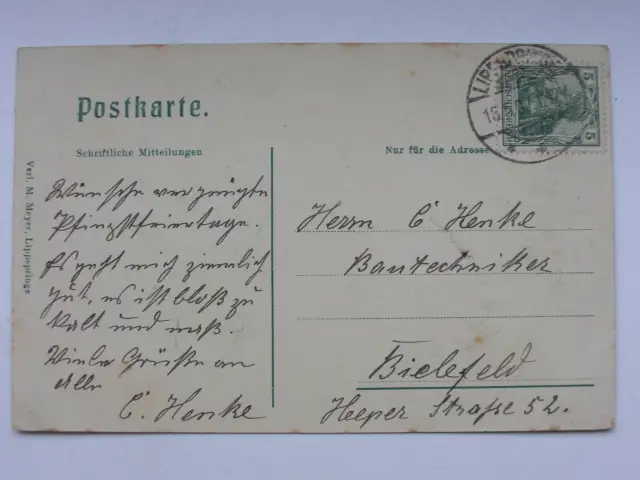 Postkarte.
Schriftliche Mitteilungen
Nur für die Adresse
5
5
Verl. M. Meyer, Lippspringe
Wünsche vergnügte
Pfingstfeiertage.
Es geht mir ziemlich
gut, es ist bloß zu
kalt und naß.
Viele Grüße an
Alle
C. Henke
Herrn C Henke
Bautechniker
Bielefeld
Heeper Straße 52.